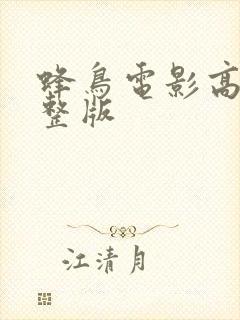 蜂鳥電影高
整版
江清月